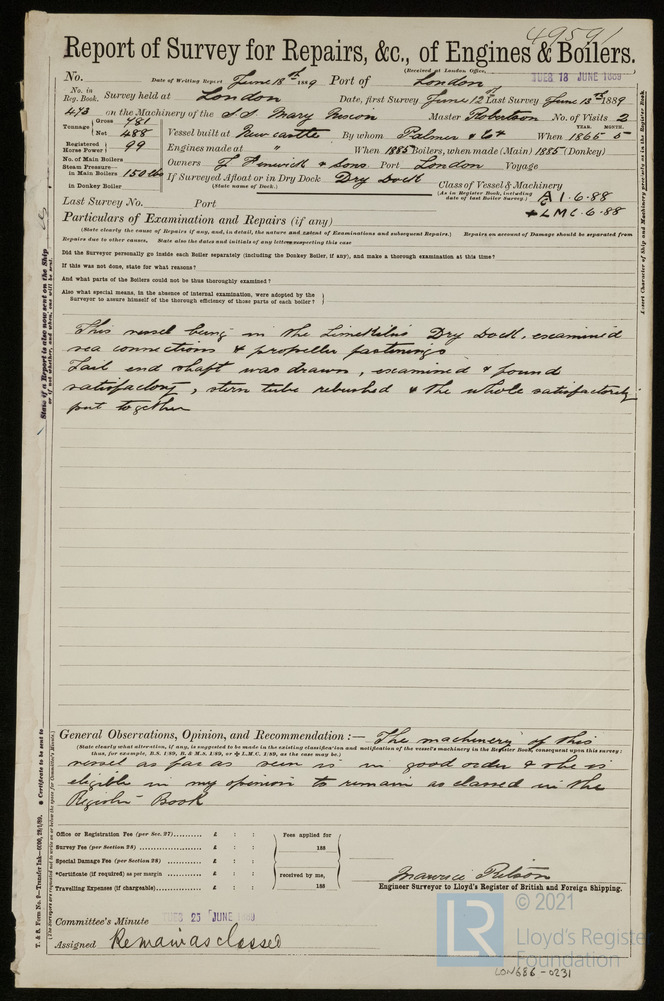 49591
Report of Survey for Repairs, &c., of Engines & Boilers.
(Received at London Office,
TUES 18 JUNE 1889
No. Date of Writing Report June 18th 1889 Port of London
No. in Reg. Book. Survey held at London Date, first Survey June 12th Last Survey June 13th 1889
473 on the Machinery of the S.S. Mary Nixon Master Robertson No. of Visits 2
Tonnage Gross 781 Net 488 Vessel built at Newcastle By whom Palmer & Co When 1865 5
YEAR. MONTH.
Registered Horse Power 99 Engines made at " When 1885 Boilers, when made (Main) 1885 (Donkey)
No. of Main Boilers
Steam Pressure—
in Main Boilers 150 lbs
in Donkey Boiler
Owners J Fenwick & Sons Port London Voyage
If Surveyed Afloat or in Dry Dock Dry Dock
(State name of Dock.)
Class of Vessel & Machinery
(As in Register Book, including date of last Boiler Survey.)
A 1 . 6 . 88
+ L M C . 6 . 88
Last Survey No. Port
Particulars of Examination and Repairs (if any)
(State clearly the cause of Repairs if any, and, in detail, the nature and extent of Examinations and subsequent Repairs.) Repairs on account of Damage should be separated from
Repairs due to other causes. State also the dates and initials of any letters respecting this case
Did the Surveyor personally go inside each Boiler separately (including the Donkey Boiler, if any), and make a thorough examination at this time?
If this was not done, state for what reasons?
And what parts of the Boilers could not be thus thoroughly examined?
Also what special means, in the absence of internal examination, were adopted by the
Surveyor to assure himself of the thorough efficiency of those parts of each boiler?
This vessel being in the Limekilns Dry Dock, examined
sea connections & propeller fastenings
Tail end shaft was drawn, examined & found
satisfactory, stern tube rebushed & the whole satisfactorily
put together
General Observations, Opinion, and Recommendation :— The machinery of this
(State clearly what alteration, if any, is suggested to be made in the existing classification and notification of the vessel's machinery in the Register Book, consequent upon this survey;
thus, for example, B.S. 1/89, B. & M.S. 1/89, or L.M.C. 1/89, as the case may be.)
vessel as far as seen is in good order & she is
eligible in my opinion to remain as classed in the
Register Book
Office or Registration Fee (per Sec. 27) £ : :
Survey Fee (per Section 28) £ : :
Special Damage Fee (per Section 28) £ : :
*Certificate (if required) as per margin £ : :
Travelling Expenses (if chargeable) £ : :
Fees applied for
188
received by me,
188
Engineer Surveyor to Lloyd's Register of British and Foreign Shipping.
Committee's Minute TUES 25 JUNE 1889
Assigned Remain as classed
State if a Report is also now sent on the Ship
or if not whether, and when, one will be sent.
Insert Character of Ship and Machinery precisely as in the Register Book.
T. & S. Form No. 9—Transfer Ink—5000, 28/1/89.
* Certificate to be sent to
(The Surveyors are requested not to write on or below the space for Committee's Minute.)
LR
© 2021
Lloyd's Register
Foundation
LON686-0231